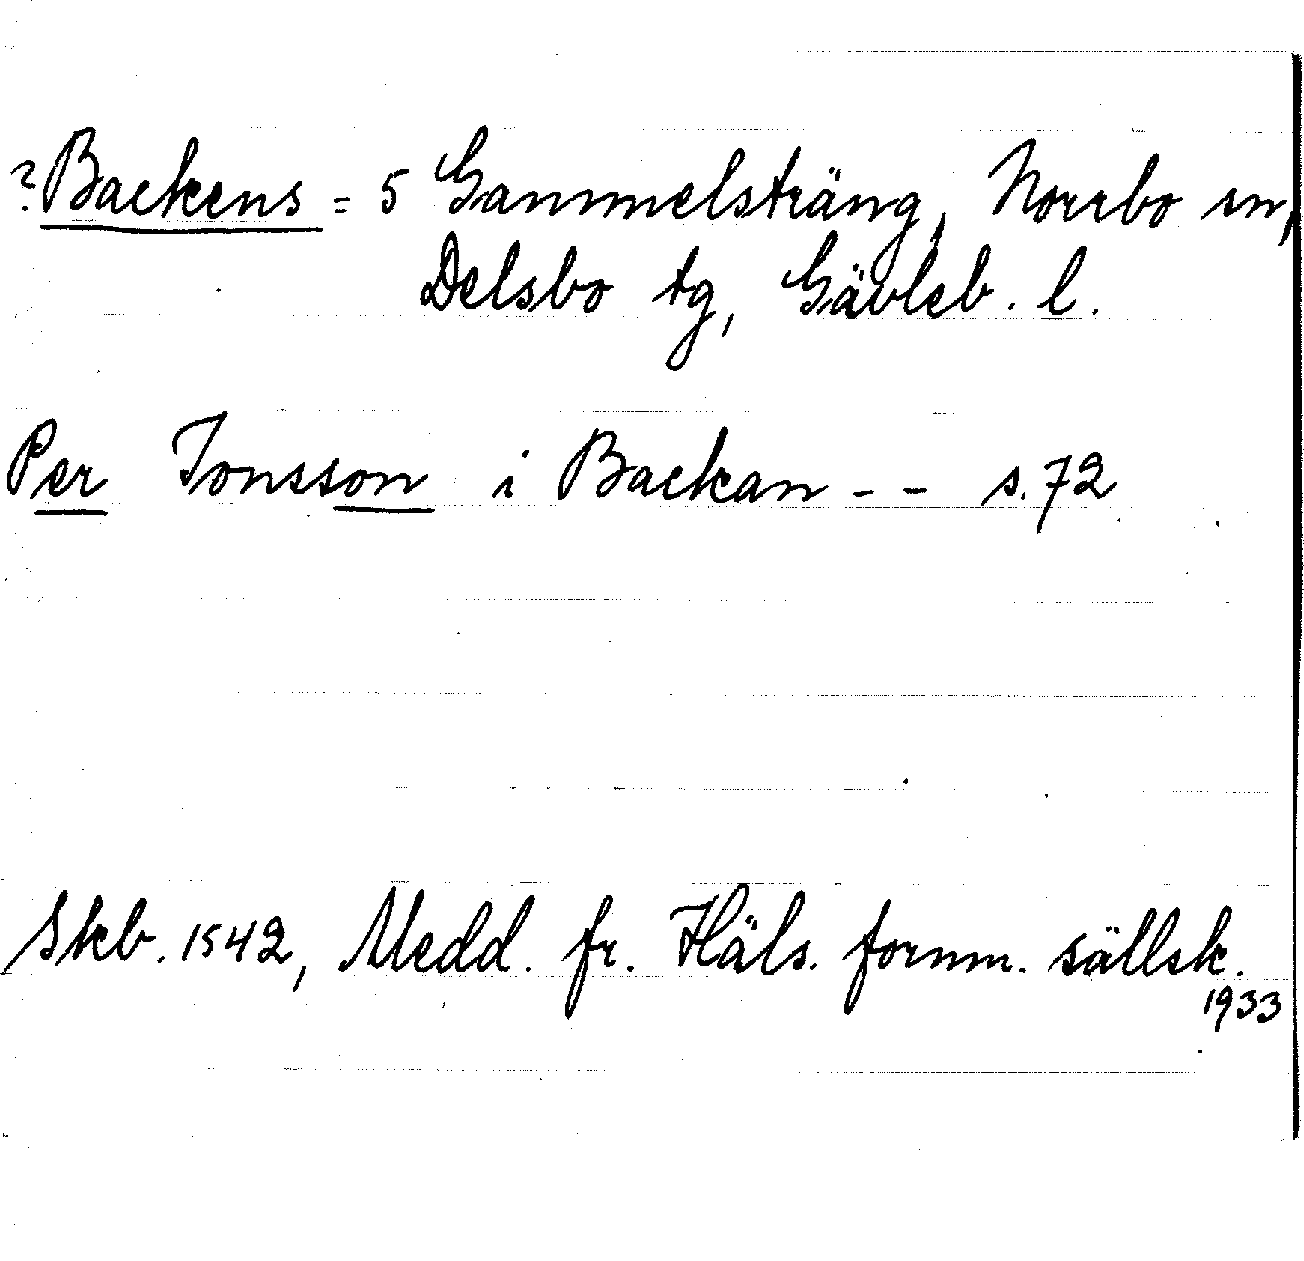 ? Backens = 5 Gammelsträng, Norrbo sn,
Delsbo tg, Gävleb. l.
Per Jonsson i Backan - - s. 72
Skb. 1542, Medd. fr. Häls. fornm. sällsk.
1933